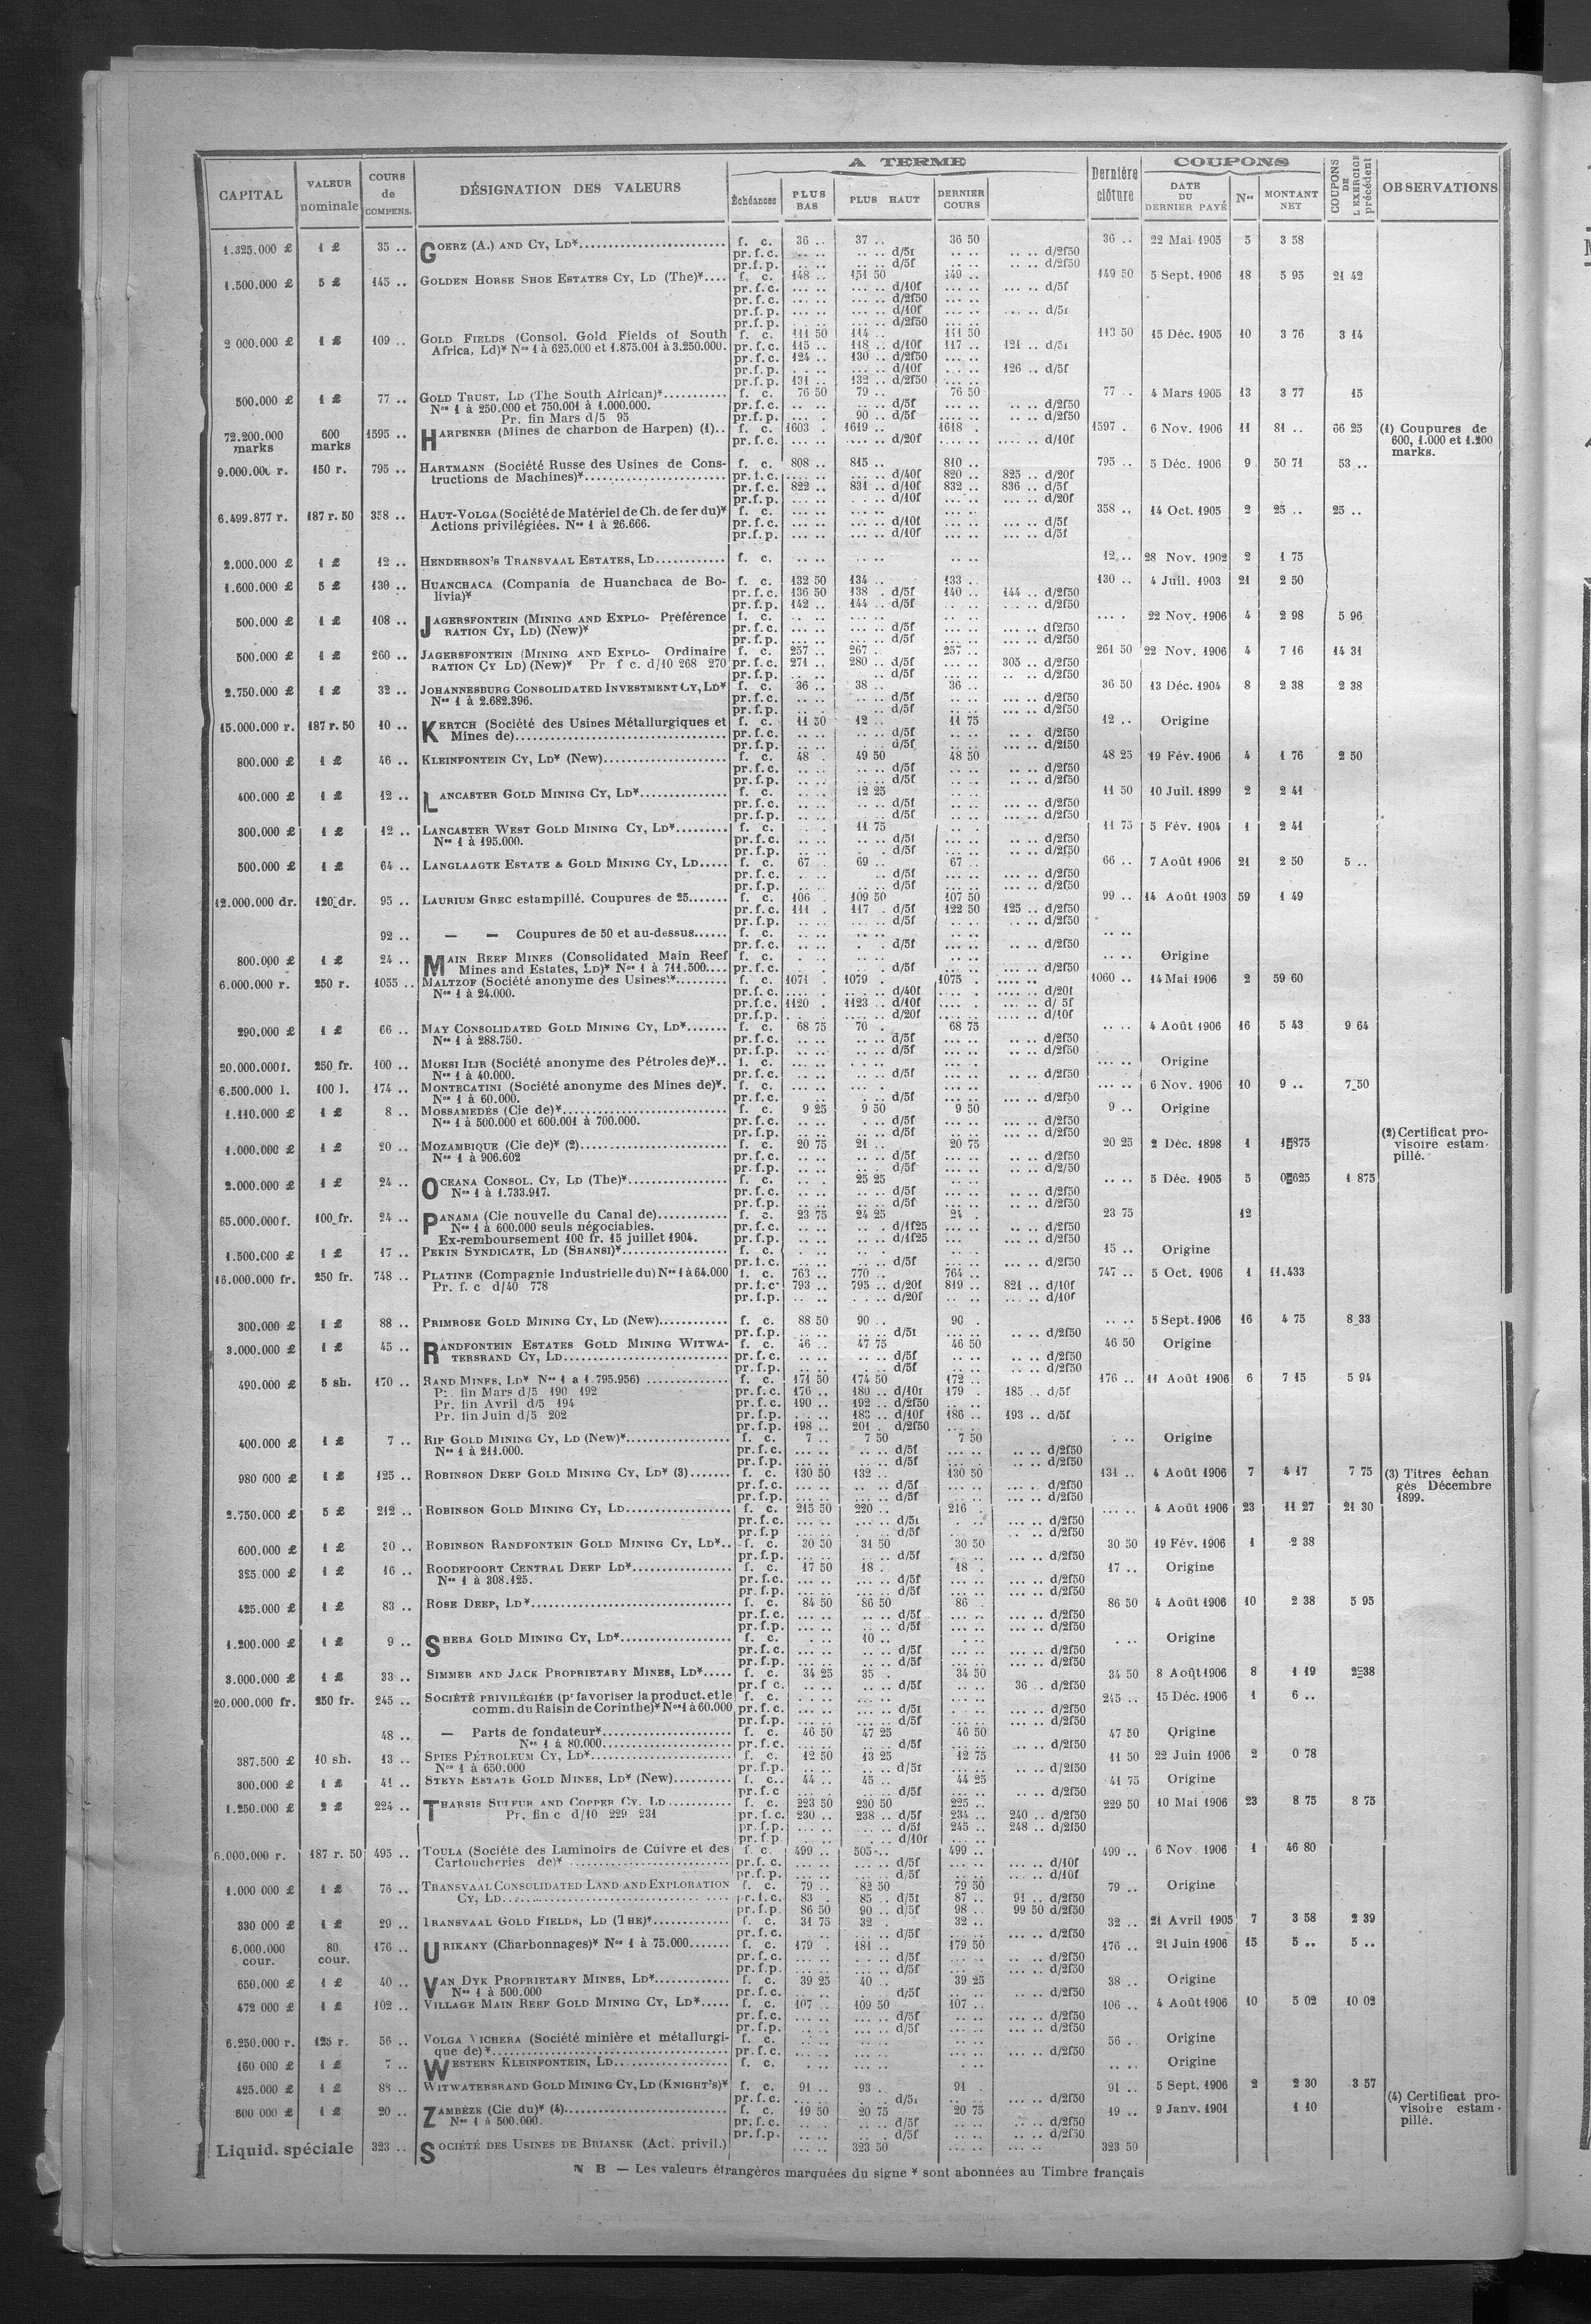 CAPITAL | VALEUR nominale | COURS de COMPENS. | DÉSIGNATION DES VALEURS | A TERME | Dernière clôture | COUPONS | COUPONS DE L'EXERCICE précédent | OBSERVATIONS
Échéances | PLUS BAS | PLUS HAUT | DERNIER COURS | DATE DU DERNIER PAYÉ | Nos | MONTANT NET
1.325.000 £ | 1 £ | 35 .. | GOERZ (A.) AND CY, LD* | f. c. | 36 .. | 37 .. | 36 50 | 36 .. | 22 Mai 1905 | 5 | 3 58
pr.f.c. | d/5f | d/2f50
pr.f.p. | d/5f | d/2f50
1.500.000 £ | 5 £ | 145 .. | GOLDEN HORSE SHOE ESTATES CY, LD (The)* | f. c. | 148 .. | 151 50 | 149 .. | 149 50 | 5 Sept. 1906 | 18 | 5 95 | 21 42
pr.f.c. | d/10f | d/5f
pr.f.c. | d/2f50
pr.f.p. | d/10f | d/5f
pr.f.p. | d/2f50
2 000.000 £ | 1 £ | 109 .. | GOLD FIELDS (Consol. Gold Fields of South | f. c. | 111 50 | 114 .. | 111 50 | 113 50 | 15 Déc. 1905 | 10 | 3 76 | 3 14
Africa, Ld)* Nos 1 à 625.000 et 1.875.001 à 3.250.000. | pr.f.c. | 115 .. | 118 .. d/10f | 117 .. | 121 .. d/5f
pr.f.c. | 124 .. | 130 .. d/2f50
pr.f.p. | d/10f | 126 .. d/5f
pr.f.p. | 131 .. | 132 .. d/2f50
500.000 £ | 1 £ | 77 .. | GOLD TRUST, LD (The South African)* | f. c. | 76 50 | 79 .. | 76 50 | 77 .. | 4 Mars 1905 | 13 | 3 77 | 15
Nos 1 à 250.000 et 750.001 à 1.000.000. | pr.f.c. | d/5f | d/2f50
Pr. fin Mars d/5 95 | pr.f.p. | 90 .. d/5f | d/2f50
72.200.000 marks | 600 marks | 1595 .. | HARPENER (Mines de charbon de Harpen) (1).. | f. c. | 1603 . | 1619 .. | 1618 . | 1597 . | 6 Nov. 1906 | 11 | 81 .. | 66 25 | (1) Coupures de 600, 1.000 et 1.200 marks.
pr.f.c. | d/20f | d/10f
150 r. | 795 .. | HARTMANN (Société Russe des Usines de Cons- | f. c. | 808 .. | 815 .. | 810 .. | 795 .. | 5 Déc. 1906 | 9 | 50 71 | 53 ..
tructions de Machines)* | pr.f.c. | d/40f | 820 .. | 825 .. d/20f
pr.f.c. | 822 .. | 831 .. d/10f | 832 .. | 836 .. d/5f
pr.f.p. | d/10f | d/20f
6.499.877 r. | 187 r. 50 | 358 .. | HAUT-VOLGA (Société de Matériel de Ch. de fer du)* | f. c. | 358 .. | 14 Oct. 1905 | 2 | 25 .. | 25 ..
Actions privilégiées. Nos 1 à 26.666. | pr.f.c. | d/10f | d/5f
pr.f.p. | d/10f | d/5f
2.000.000 £ | 1 £ | 12 .. | HENDERSON'S TRANSVAAL ESTATES, LD | f. c. | 12 .. | 28 Nov. 1902 | 2 | 1 75
1.600.000 £ | 5 £ | 130 .. | HUANCHACA (Compania de Huanchaca de Bo- | f. c. | 132 50 | 134 .. | 133 .. | 130 .. | 4 Juil. 1903 | 21 | 2 50
livia)* | pr.f.c. | 136 50 | 138 . d/5f | 140 .. | 144 .. d/2f50
pr.f.p. | 142 .. | 144 .. d/5f | d/2f50
500.000 £ | 1 £ | 108 .. | JAGERSFONTEIN (MINING AND EXPLO- Préférence | f. c. | 22 Nov. 1906 | 4 | 2 98 | 5 96
RATION CY, LD) (New)* | pr.f.c. | d/5f | df2f50
pr.f.p. | d/5f | d/2f50
500.000 £ | 1 £ | 260 .. | JAGERSFONTEIN (MINING AND EXPLO- Ordinaire | f. c. | 257 .. | 267 .. | 257 .. | 261 50 | 22 Nov. 1906 | 4 | 7 16 | 14 31
RATION CY LD) (New)* Pr f c. d/10 268 270 | pr.f.c. | 271 .. | 280 .. d/5f | 305 .. d/2f50
pr.f.p. | d/5f | d/2f50
2.750.000 £ | 1 £ | 32 .. | JOHANNESBURG CONSOLIDATED INVESTMENT CY, LD* | f. c. | 36 .. | 38 .. | 36 .. | 36 50 | 13 Déc. 1904 | 8 | 2 38 | 2 38
Nos 1 à 2.682.396. | pr.f.c. | d/5f | d/2f50
pr.f.p. | d/5f | d/2f50
15.000.000 r. | 187 r. 50 | 10 .. | KERTCH (Société des Usines Métallurgiques et | f. c. | 11 50 | 12 .. | 11 75 | 12 .. | Origine
Mines de) | pr.f.c. | d/5f | d/2f50
pr.f.p. | d/5f | d/2f50
800.000 £ | 1 £ | 46 .. | KLEINFONTEIN CY, LD* (New) | f. c. | 48 . | 49 50 | 48 50 | 48 25 | 19 Fév. 1906 | 4 | 1 76 | 2 50
pr.f.c. | d/5f | d/2f50
pr.f.p. | d/5f | d/2f50
400.000 £ | 1 £ | 12 .. | LANCASTER GOLD MINING CY, LD* | f. c. | 12 25 | 11 50 | 10 Juil. 1899 | 2 | 2 41
pr.f.c. | d/5f | d/2f50
pr.f.p. | d/5f | d/2f50
300.000 £ | 1 £ | 12 .. | LANCASTER WEST GOLD MINING CY, LD* | f. c. | 11 75 | 11 75 | 5 Fév. 1904 | 1 | 2 41
Nos 1 à 195.000. | pr.f.c. | d/5f | d/2f50
pr.f.p. | d/5f | d/2f50
500.000 £ | 1 £ | 64 .. | LANGLAAGTE ESTATE & GOLD MINING CY, LD | f. c. | 67 .. | 69 .. | 67 .. | 66 .. | 7 Août 1906 | 21 | 2 50 | 5 ..
pr.f.c. | d/5f | d/2f50
pr.f.p. | d/5f | d/2f50
12.000.000 dr. | 120 dr. | 95 .. | LAURIUM GREC estampillé. Coupures de 25 | f. c. | 106 . | 109 50 | 107 50 | 99 .. | 14 Août 1903 | 59 | 1 49
pr.f.c. | 111 . | 117 . d/5f | 122 50 | 125 .. d/2f50
pr.f.p. | d/5f | d/2f50
92 .. | — — Coupures de 50 et au-dessus | f. c.
pr.f.c. | d/5f | d/2f50
800.000 £ | 1 £ | 24 .. | MAIN REEF MINES (Consolidated Main Reef | f. c. | Origine
Mines and Estates, LD)* Nos 1 à 711.500 | pr.f.c. | d/5f | d/2f50
6.000.000 r. | 250 r. | 1055 .. | MALTZOF (Société anonyme des Usines)* | f. c. | 1071 . | 1079 . | 1075 . | 1060 .. | 14 Mai 1906 | 2 | 59 60
Nos 1 à 24.000. | pr.f.c. | d/40f | d/20f
pr.f.c. | 1120 . | 1123 .. d/10f | d/ 5f
pr.f.p. | d/20f | d/10f
290.000 £ | 1 £ | 66 .. | MAY CONSOLIDATED GOLD MINING CY, LD* | f. c. | 68 75 | 70 . | 68 75 | 4 Août 1906 | 16 | 5 43 | 9 64
Nos 1 à 288.750. | pr.f.c. | d/5f | d/2f50
pr.f.p. | d/5f | d/2f50
20.000.000 f. | 250 fr. | 100 .. | MOESI ILIR (Société anonyme des Pétroles de)* | f. c. | Origine
Nos 1 à 40.000. | pr.f.c. | d/5f | d/2f50
6.500.000 l. | 100 l. | 174 .. | MONTECATINI (Société anonyme des Mines de)*. | f. c. | 6 Nov. 1906 | 10 | 9 .. | 7 50
Nos 1 à 60.000. | pr.f.c. | d/5f | d/2f50
1.110.000 £ | 1 £ | 8 .. | MOSSAMEDÈS (Cie de)* | f. c. | 9 25 | 9 50 | 9 50 | 9 .. | Origine
Nos 1 à 500.000 et 600.001 à 700.000. | pr.f.c. | d/5f | d/2f50
pr.f.p. | d/5f | d/2f50
1.000.000 £ | 1 £ | 20 .. | MOZAMBIQUE (Cie de)* (2) | f. c. | 20 75 | 21 .. | 20 75 | 20 25 | 2 Déc. 1898 | 1 | 1 875 | (2) Certificat provisoire estampillé.
Nos 1 à 906.602 | pr.f.c. | d/5f | d/2f50
pr.f.p. | d/5f | d/2/50
2.000.000 £ | 1 £ | 24 .. | OCEANA CONSOL. CY, LD (The)* | f. c. | 25 25 | 5 Déc. 1905 | 5 | 0 625 | 1 875
Nos 1 à 1.733.917. | pr.f.c. | d/5f | d/2f50
pr.f.p. | d/5f | d/2f50
65.000.000 f. | 100 fr. | 24 .. | PANAMA (Cie nouvelle du Canal de) | f. c. | 23 75 | 24 25 | 24 . | 23 75 | 12
Nos 1 à 600.000 seuls négociables. | pr.f.c. | d/1f25 | d/2f50
Ex-remboursement 100 fr. 15 juillet 1904. | pr.f.p. | d/1f25 | d/2f50
1.500.000 £ | 1 £ | 17 .. | PEKIN SYNDICATE, LD (SHANSI)* | f. c. | 15 .. | Origine
pr.f.c. | d/5f | d/2f50
16.000.000 fr. | 250 fr. | 748 .. | PLATINE (Compagnie Industrielle du) Nos 1 à 64.000 | f. c. | 763 .. | 770 .. | 764 .. | 747 .. | 5 Oct. 1906 | 1 | 11.433
Pr. f. c d/40 778 | pr.f.c. | 793 .. | 795 .. d/20f | 819 .. | 821 .. d/10f
pr.f.p. | d/20f | d/10f
300.000 £ | 1 £ | 88 .. | PRIMROSE GOLD MINING CY, LD (New) | f. c. | 88 50 | 90 .. | 90 . | 5 Sept. 1906 | 16 | 4 75 | 8 33
pr.f.p. | d/5f | d/2f50
3.000.000 £ | 1 £ | 45 .. | RANDFONTEIN ESTATES GOLD MINING WITWA- | f. c. | 46 .. | 47 75 | 46 50 | 46 50 | Origine
TERSRAND CY, LD | pr.f.c. | d/5f | d/2f50
pr.f.p. | d/5f | d/2f50
490.000 £ | 5 sh. | 170 .. | RAND MINES, LD* Nos 1 à 1.795.956) | f. c. | 171 50 | 174 50 | 172 .. | 176 .. | 11 Août 1906 | 6 | 7 15 | 5 94
Pr. fin Mars d/5 190 192 | pr.f.c. | 176 .. | 180 .. d/10f | 179 . | 185 .. d/5f
Pr. fin Avril d/5 194 | pr.f.c. | 190 .. | 192 .. d/2f50
Pr. fin Juin d/5 202 | pr.f.p. | 183 .. d/10f | 186 .. | 193 .. d/5f
pr.f.p. | 198 .. | 201 . d/2f50
400.000 £ | 1 £ | 7 .. | RIP GOLD MINING CY, LD (New)* | f. c. | 7 .. | 7 50 | 7 50 | Origine
Nos 1 à 211.000. | pr.f.c. | d/5f | d/2f50
pr.f.p. | d/5f | d/2f50
980 000 £ | 1 £ | 125 .. | ROBINSON DEEP GOLD MINING CY, LD* (3) | f. c. | 130 50 | 132 .. | 130 50 | 131 .. | 4 Août 1906 | 7 | 4 17 | 7 75 | (3) Titres échan gés Décembre 1899.
pr.f.c. | d/5f | d/2f50
pr.f.p. | d/5f | d/2f50
2.750.000 £ | 5 £ | 212 .. | ROBINSON GOLD MINING CY, LD | f. c. | 215 50 | 220 .. | 216 | 4 Août 1906 | 23 | 11 27 | 21 30
pr.f.c. | d/5f | d/2f50
pr.f.p | d/5f | d/2f50
600.000 £ | 1 £ | 30 .. | ROBINSON RANDFONTEIN GOLD MINING CY, LD* | f. c. | 30 50 | 31 50 | 30 50 | 30 50 | 19 Fév. 1906 | 1 | 2 38
pr.f.p. | d/5f | d/2f50
325.000 £ | 1 £ | 16 .. | ROODEPOORT CENTRAL DEEP LD* | f. c. | 17 50 | 18 . | 18 . | 17 .. | Origine
Nos 1 à 308.125. | pr.f.c. | d/5f | d/2f50
pr.f.p. | d/5f | d/2f50
425.000 £ | 1 £ | 83 .. | ROSE DEEP, LD* | f. c. | 84 50 | 86 50 | 86 .. | 86 50 | 4 Août 1906 | 10 | 2 38 | 5 95
pr.f.c. | d/5f | d/2f50
pr.f.p. | d/5f | d/2f50
1.200.000 £ | 1 £ | 9 .. | SHEBA GOLD MINING CY, LD* | f. c. | 10 .. | Origine
pr.f.c. | d/5f | d/2f50
pr.f.p. | d/5f | d/2f50
3.000.000 £ | 1 £ | 33 .. | SIMMER AND JACK PROPRIETARY MINES, LD* | f. c. | 34 25 | 35 . | 34 50 | 34 50 | 8 Août 1906 | 8 | 1 19 | 2 38
pr.f c. | d/5f | 36 .. d/2f50
20.000.000 fr. | 250 fr. | 245 .. | SOCIÉTÉ PRIVILÉGIÉE (pr favoriser la product. et le | f. c. | 245 .. | 15 Déc. 1906 | 1 | 6 ..
comm. du Raisin de Corinthe)* Nos 1 à 60.000 | pr.f.c. | d/5f | d/2f50
pr.f.p. | d/5f | d/2f50
48 .. | — Parts de fondateur* | f. c. | 46 50 | 47 25 | 46 50 | 47 50 | Origine
Nos 1 à 80.000 | pr.f.c. | d/5f | d/2f50
387.500 £ | 10 sh. | 13 .. | SPIES PÉTROLEUM CY, LD* | f. c. | 12 50 | 13 25 | 12 75 | 11 50 | 22 Juin 1906 | 2 | 0 78
Nos 1 à 650.000 | pr.f.p. | d/5f | d/2f50
300.000 £ | 1 £ | 41 .. | STEYN ESTATE GOLD MINES, LD* (New) | f. c. | 44 .. | 45 .. | 44 25 | 41 75 | Origine
pr.f.c | d/5f | d/2f50
1.250.000 £ | 2 £ | 224 .. | THARSIS SULFUR AND COPPER CY. LD | f. c. | 223 50 | 230 50 | 225 .. | 229 50 | 10 Mai 1906 | 23 | 8 75 | 8 75
Pr. fin c d/10 229 231 | pr.f.c. | 230 .. | 238 .. d/5f | 234 .. | 240 .. d/2f50
pr.f.p. | d/5f | 245 .. | 248 .. d/2f50
pr.f.p | d/10f
6.000.000 r. | 187 r. 50 | 495 .. | TOULA (Société des Laminoirs de Cuivre et des | f. c. | 499 .. | 505 .. | 499 .. | 499 .. | 6 Nov. 1906 | 1 | 46 80
Cartoucheries de)* | pr.f.c. | d/5f | d/10f
pr.f.p. | d/5f | d/10f
1.000 000 £ | 1 £ | 76 .. | TRANSVAAL CONSOLIDATED LAND AND EXPLORATION | f. c. | 79 .. | 82 50 | 79 50 | 79 .. | Origine
CY, LD | pr.f.c. | 83 . | 85 .. d/5f | 87 .. | 91 .. d/2f50
pr.f.p. | 86 50 | 90 .. d/5f | 98 .. | 99 50 d/2f50
330 000 £ | 1 £ | 29 .. | TRANSVAAL GOLD FIELDS, LD (THE)* | f. c. | 31 75 | 32 . | 32 .. | 32 .. | 21 Avril 1905 | 7 | 3 58 | 2 39
pr.f.c. | d/5f | d/2f50
6.000.000 cour. | 80 cour. | 176 .. | URIKANY (Charbonnages)* Nos 1 à 75.000 | f. c. | 179 . | 181 .. | 179 50 | 176 .. | 21 Juin 1906 | 15 | 5 .. | 5 ..
pr.f.c. | d/5f | d/2f50
pr.f.p. | d/5f | d/2f50
650.000 £ | 1 £ | 40 .. | VAN DYK PROPRIETARY MINES, LD* | f. c. | 39 25 | 40 .. | 39 25 | 38 .. | Origine
Nos 1 à 500.000 | pr.f.c. | d/5f | d/2f50
472 000 £ | 1 £ | 102 .. | VILLAGE MAIN REEF GOLD MINING CY, LD* | f. c. | 107 .. | 109 50 | 107 .. | 106 .. | 4 Août 1906 | 10 | 5 02 | 10 02
pr.f.c. | d/5f | d/2f50
pr.f.p. | d/5f | d/2f50
6.250.000 r. | 125 r. | 56 .. | VOLGA VICHERA (Société minière et métallurgi- | f. c. | 56 .. | Origine
que de)* | pr.f.c. | d/2f50
160 000 £ | 1 £ | 7 .. | WESTERN KLEINFONTEIN, LD | f. c. | Origine
425.000 £ | 1 £ | 88 .. | WITWATERSRAND GOLD MINING CY, LD (KNIGHT'S)* | f. c. | 91 .. | 93 . | 91 . | 91 .. | 5 Sept. 1906 | 2 | 2 30 | 3 57
pr.f.c. | d/5f | d/2f50
600 000 £ | 1 £ | 20 .. | ZAMBÈZE (Cie du)* (4) | f. c. | 19 50 | 20 75 | 20 75 | 19 .. | 9 Janv. 1901 | 1 10 | (4) Certificat provisoire estampillé.
Nos 1 à 500.000. | pr.f.c. | d/5f | d/2f50
pr.f.p. | d/5f | d/2f50
Liquid. spéciale | 323 .. | SOCIÉTÉ DES USINES DE BRIANSK (Act. privil.) | 323 50 | 323 50
N B — Les valeurs étrangères marquées du signe * sont abonnées au Timbre français